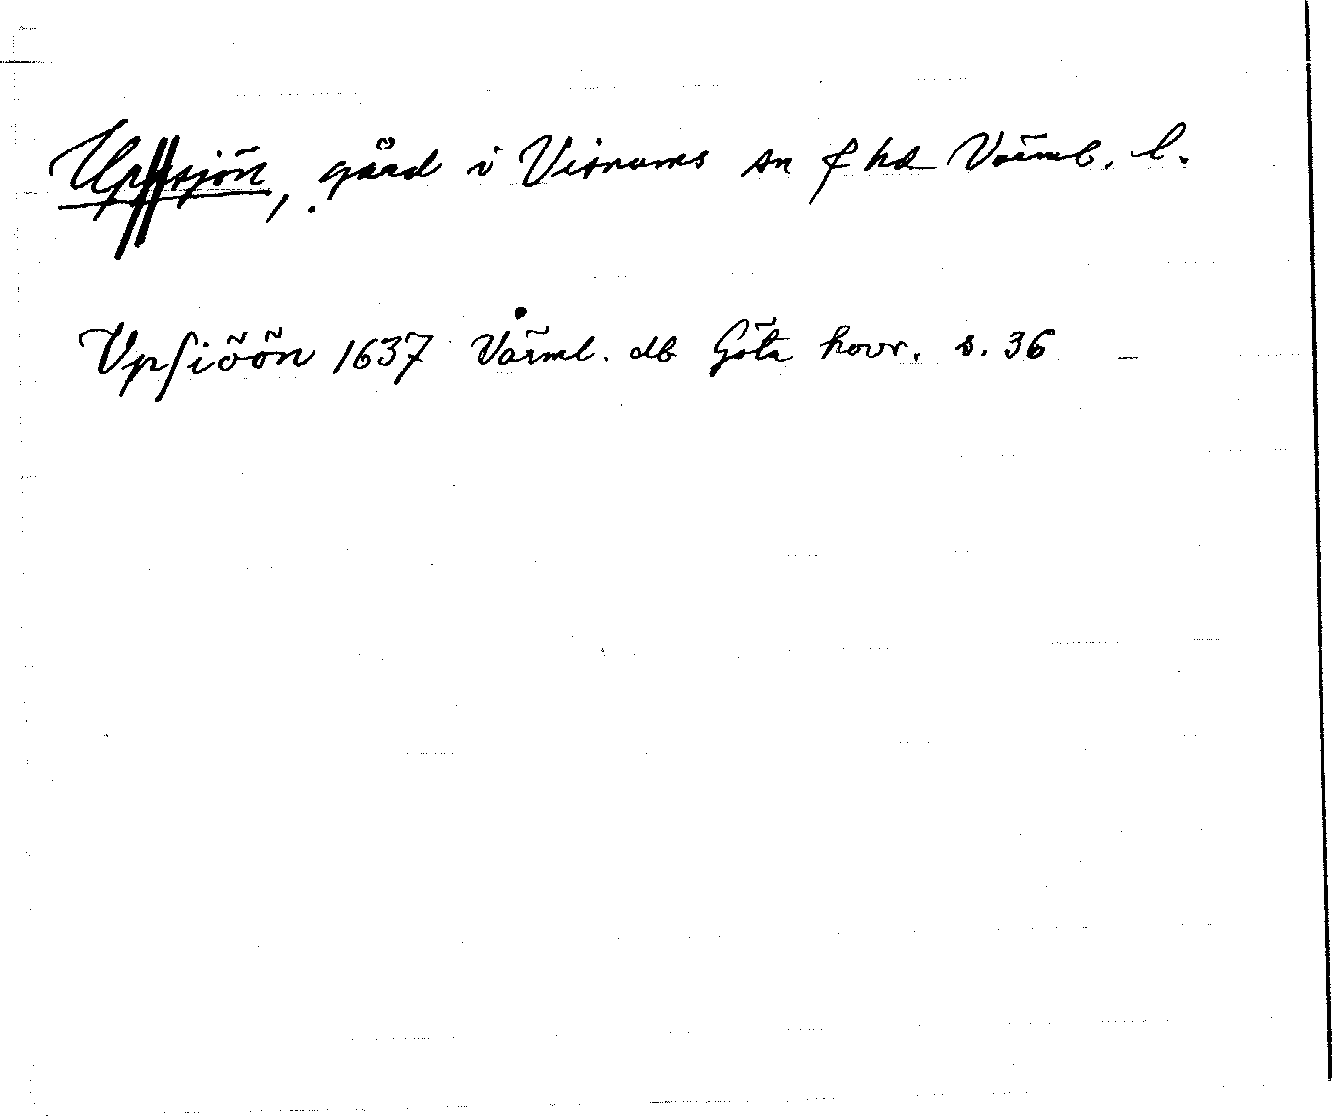 Uppsjön, gård i Visnums sn f hd Värml. l.
Vpſiöön 1637 Värml. db Göta hovr. s. 36 _